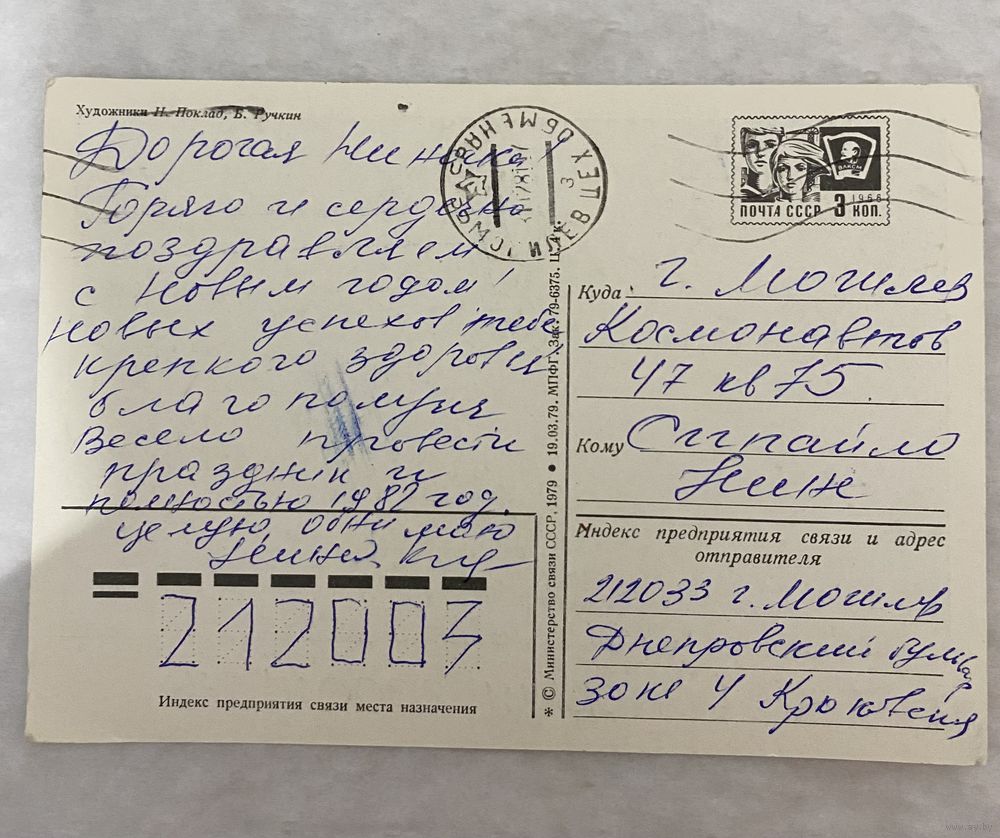 Художники Н. Поклад, Б. Ручкин
Дорогая Ниночка!
Горячо и сердечно
поздравляем
с Новым годом!
Новых успехов тебе
крепкого здоровья
благополучия
Весело провести
праздник и
полностью 1982 год.
целую, обнимаю
Нина
212003
Индекс предприятия связи места назначения
* © Министерство связи СССР, 1979 ● 19.03.79. МПФГ. Зак. 79-6375. Ц. 4 к.
МОГИЛЕВ ОБЛ
ПОЧТА СССР 3 КОП.
1966
ВЛКСМ
Куда г. Могилев
Космонавтов
47 кв 75
Кому Сипайло
Нине
Индекс предприятия связи и адрес
отправителя
212033 г. Могилев
Днепровский бульвар
4 Крюковская
www.ay.by